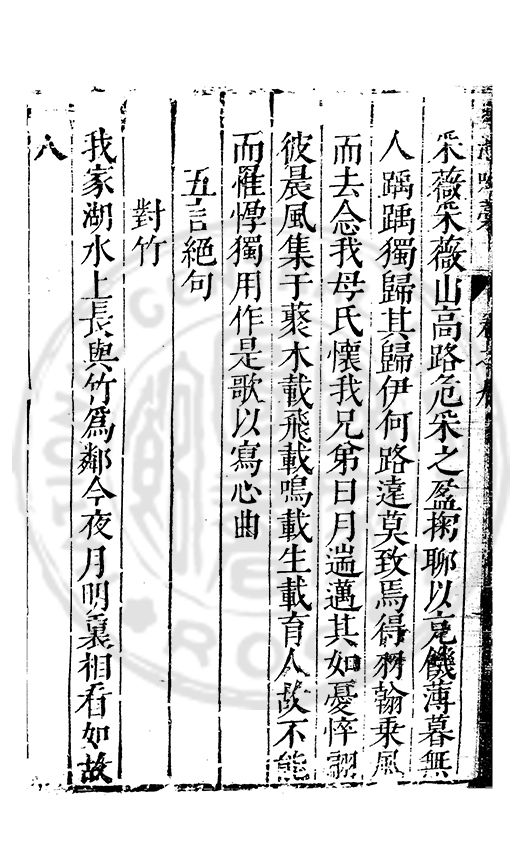 采薇采薇山高路危采之盈掬聊以克饑薄暮無
人踽踽獨歸其歸伊何路遠莫致焉得羽翰乘風
而去念我母氏懷我兄弟日月遄邁其如憂悴
彼晨風集于藂木載飛載鳴載生載育人故不能
而罹惸獨用作是歌以寫心曲
五言絕句
對竹
我家湖水上長與竹爲鄰今夜月明裏相看如故
人